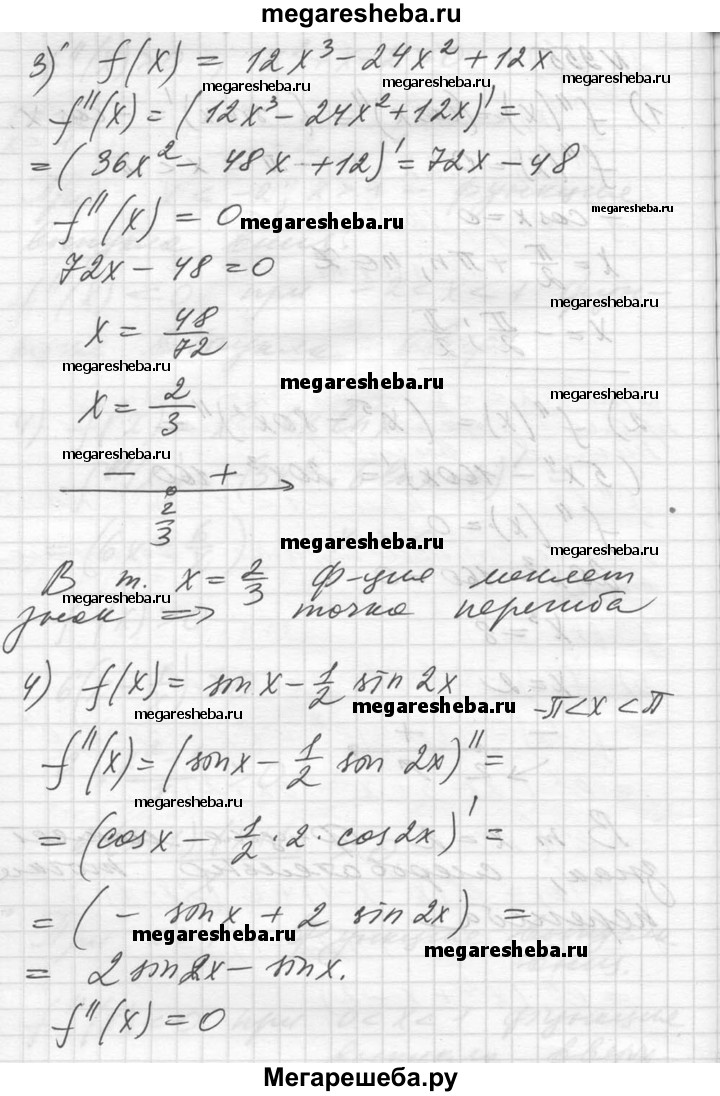 megaresheba.ru
3) f(x) = 12x³ - 24x² + 12x
megaresheba.ru megaresheba.ru
f''(x) = (12x³ - 24x² + 12x)' =
megaresheba.ru
= (36x² - 48x + 12)' = 72x - 48
f''(x) = 0
megaresheba.ru megaresheba.ru
72x - 48 = 0
megaresheba.ru
x = 48/72
megaresheba.ru
megaresheba.ru
x = 2/3
megaresheba.ru
megaresheba.ru
- +
2/3
megaresheba.ru
megaresheba.ru
В т. x = 2/3 ф-ция меняет
megaresheba.ru megaresheba.ru
знак => точка перегиба
4) f(x) = sin x - 1/2 sin 2x
-π < x < π
megaresheba.ru megaresheba.ru
f''(x) = (sin x - 1/2 sin 2x)'' =
megaresheba.ru
= (cos x - 1/2 · 2 · cos 2x)' =
= (- sin x + 2 sin 2x) =
megaresheba.ru megaresheba.ru
= 2 sin 2x - sin x.
f''(x) = 0
Мегарешеба.ру